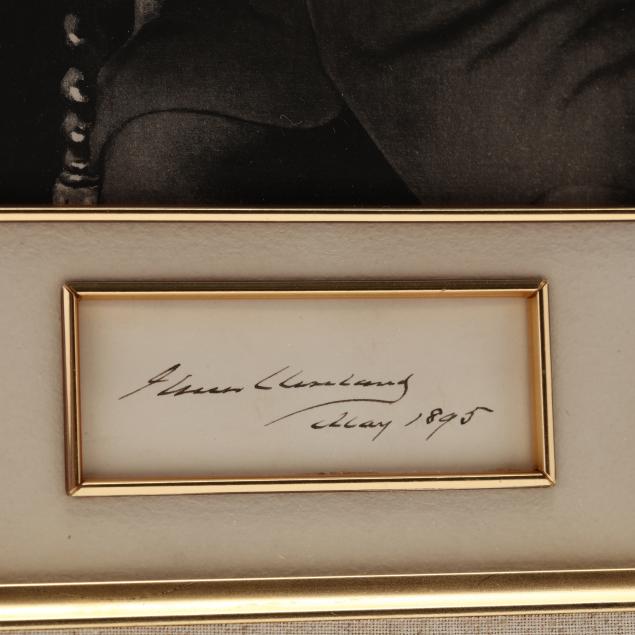 Grover Cleveland
May 1895